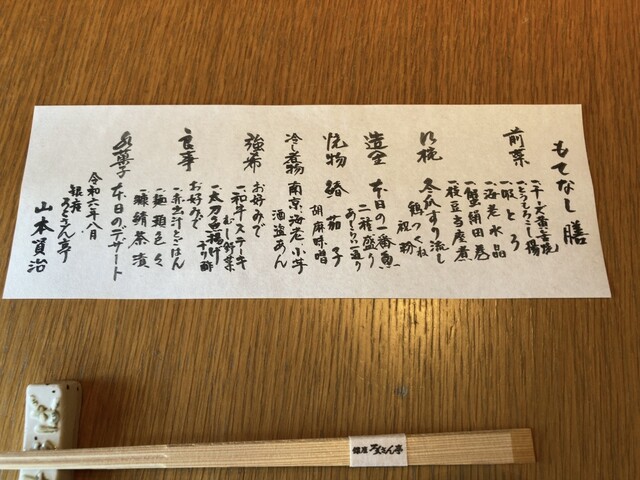 もてなし膳
前菜
一、干犬黄金焼
一、とうもろこし揚
一、蝦とろ
一、海老水晶
一、蟹絹田巻
一、枝豆当座煮
吸椀
冬瓜すり流し
鶏つくね
祝粉
造里
本日の一番魚
二種盛り
あしらい一通り
焼物
鰆
茄子
胡麻味噌
冷し煮物
南京海老小芋
酒盗あん
強肴
お好みで
一、和牛ステーキ
むし野菜
一、太刀魚揚げ
ポン酢
食事
お好みで
一、赤出汁とごはん
一、麺類色々
一、鰻鯖茶漬
水菓子
本日のデザート
令和六年八月
銀座
ろくさん亭
山本賢治
銀座 ろくさん亭